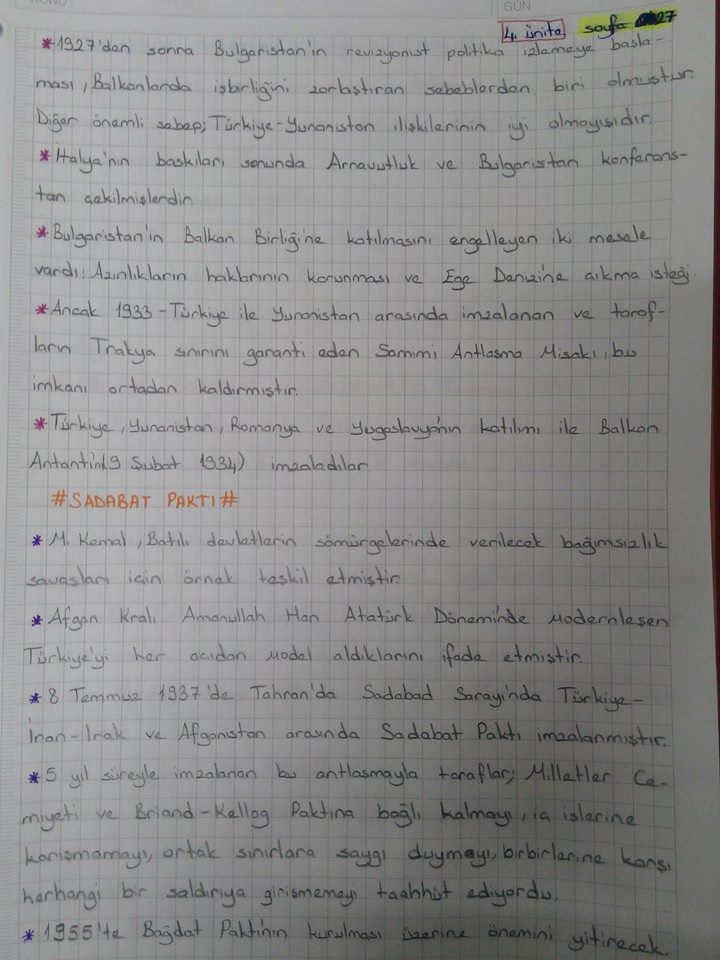 GÜN
4. ünite sayfa 27
*1927'den sonra Bulgaristan'ın revizyonist politika izlemeye başla-
ması, Balkanlarda işbirliğini zorlaştıran sebeblerden biri olmuştur.
Diğer önemli sebep; Türkiye-Yunanistan ilişkilerinin iyi olmayışıdır.
*İtalya'nın baskıları sonunda Arnavutluk ve Bulgaristan konferans-
tan çekilmişlerdir.
*Bulgaristan'ın Balkan Birliğine katılmasını engelleyen iki mesele
vardı; Azınlıkların haklarının korunması ve Ege Denizine çıkma isteği.
*Ancak 1933-Türkiye ile Yunanistan arasında imzalanan ve taraf-
ların Trakya sınırını garanti eden Samimi Antlaşma Misakı, bu
imkanı ortadan kaldırmıştır.
*Türkiye, Yunanistan, Romanya ve Yugoslavya'nın katılımı ile Balkan
Antantını(9 Şubat 1934) imzaladılar.
#SADABAT PAKTI#
*M. Kemal, Batılı devletlerin sömürgelerinde verilecek bağımsızlık
savaşları için örnek teşkil etmiştir.
*Afgan Kralı Amanullah Han Atatürk Dönemi'nde modernleşen
Türkiye'yi her açıdan model aldıklarını ifade etmiştir.
*8 Temmuz 1937'de Tahran'da Sadabad Sarayı'nda Türkiye-
İran-Irak ve Afganistan arasında Sadabat Paktı imzalanmıştır.
*5 yıl süreyle imzalanan bu antlaşmayla taraflar; Milletler Ce-
miyeti ve Briand-Kellog Paktına bağlı kalmayı, iç işlerine
karışmamayı, ortak sınırlara saygı duymayı, birbirlerine karşı
herhangi bir saldırıya girişmemeyi taahhüt ediyordu.
*1955'te Bağdat Paktı'nın kurulması üzerine önemini yitirecek.